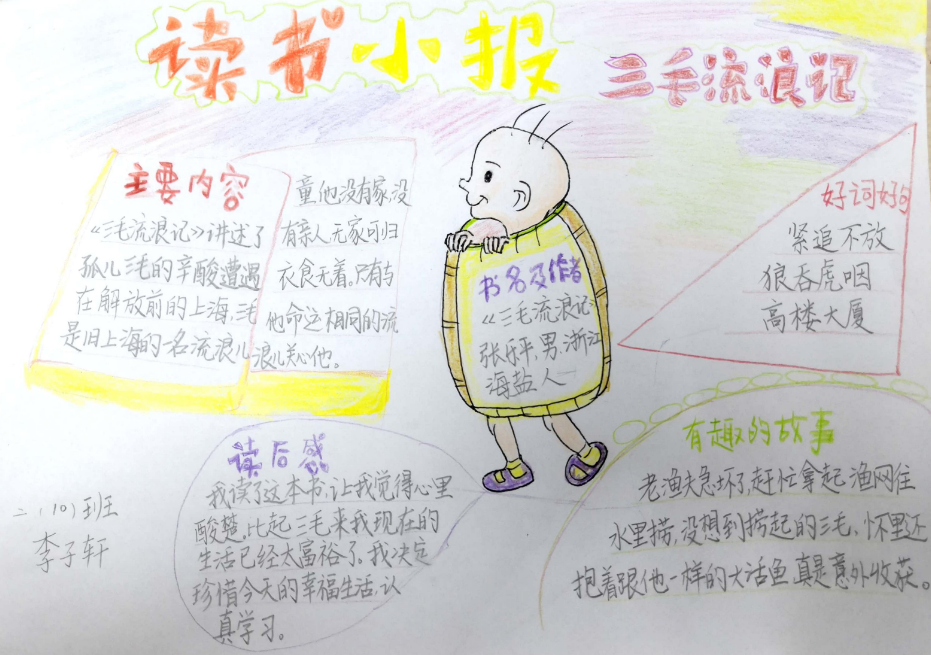 读书小报
三毛流浪记
主要内容
《三毛流浪记》讲述了
孤儿三毛的辛酸遭遇
在解放前的上海,三毛
是旧上海的一名流浪儿
童他没有家,没
有亲人无家可归
衣食无着。只有与
他命运相同的流
浪儿关心他。
书名及作者
《三毛流浪记》
张乐平,男,浙江
海盐人
好词好句
紧追不放
狼吞虎咽
高楼大厦
读后感
我读了这本书,让我觉得心里
酸楚,比起三毛来我现在的
生活已经太富裕了,我决定
珍惜今天的幸福生活,认
真学习。
有趣的故事
老渔夫急坏了,赶忙拿起渔网往
水里捞,没想到捞起的三毛,怀里还
抱着跟他一样的大活鱼,真是意外收获。
二(10)班
李子轩